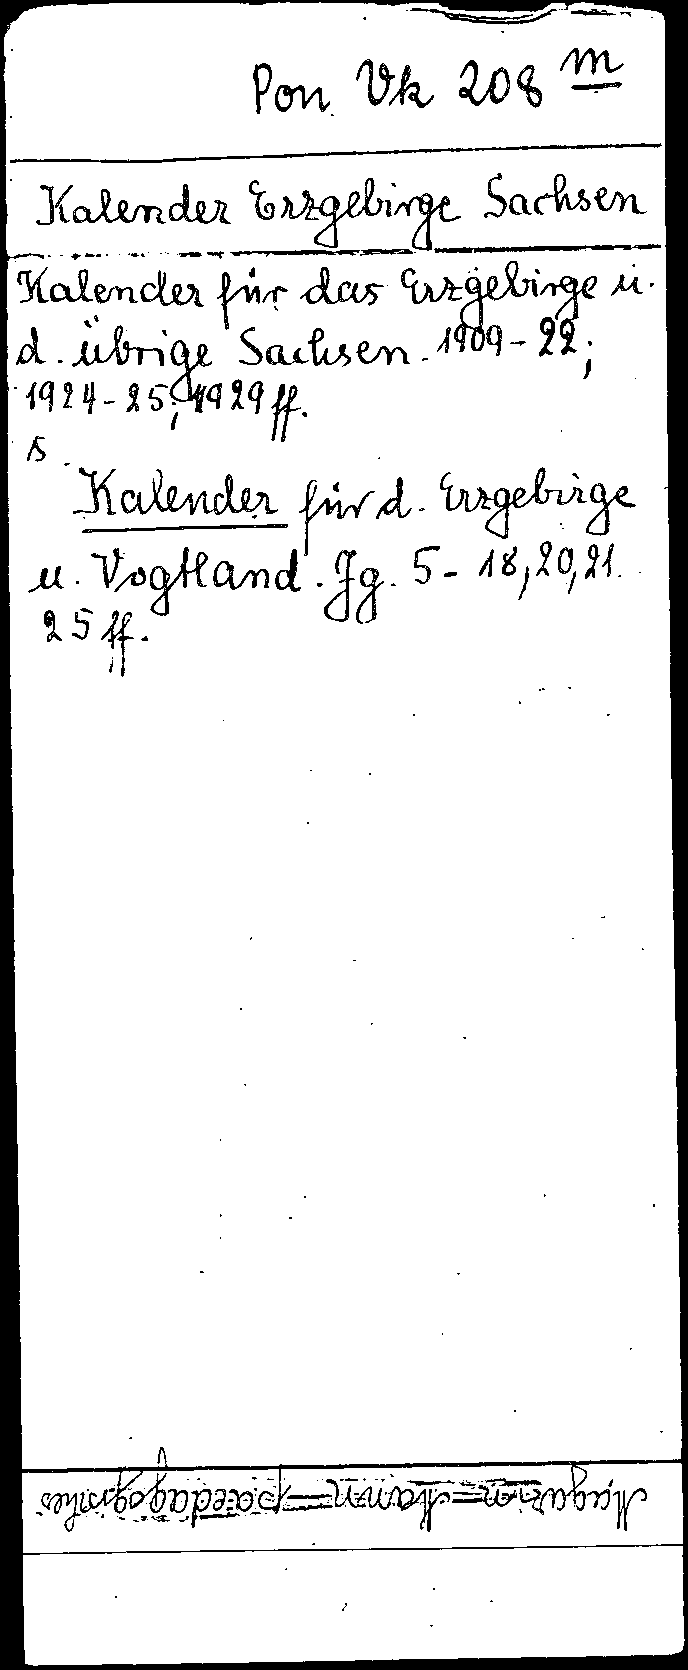 Pon Vk 208 m
Kalender Erzgebirge Sachsen
Kalender für das Erzgebirge u.
d. übrige Sachsen. 1909-22;
1924-25; 1929 ff.
s.
Kalender für d. Erzgebirge
u. Vogtland. Jg. 5-18, 20, 21.
25 ff.
Magazin paedagogisches